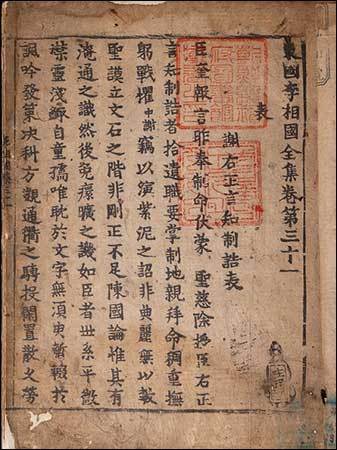 東國李相國全集卷第三十一
表
謝右正言知制誥表
臣奎報言昨奉制命伏蒙 聖慈除授臣右正
言知制誥者拾遺職要掌制地親拜命稠重撫
躬戰懼中謝竊以演紫泥之詔非典麗無以載
聖謨立文石之階非剛正不足陳國論惟其有
淹通之識然後免瘝曠之譏如臣者世系平微
襟靈淺

自童孺唯耽於文字無須臾暫輟於
諷吟發策决科方觀通衢之騁投閑置散久勞